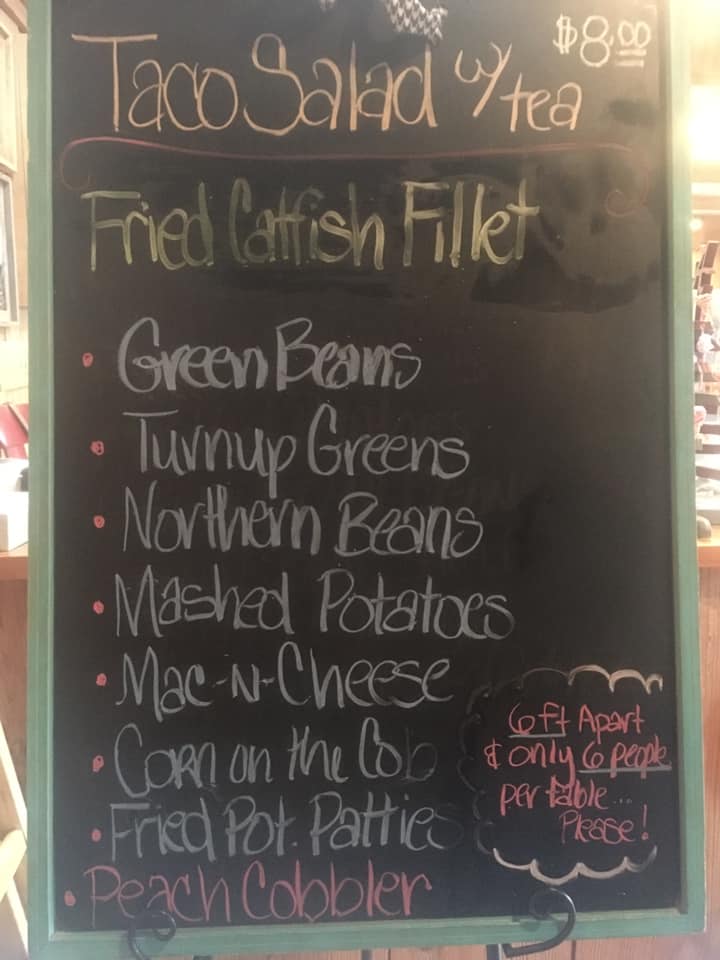 $8.00
Taco Salad w/ tea
Fried Catfish Fillet
• Green Beans
• Turnup Greens
• Northern Beans
• Mashed Potatoes
• Mac-N-Cheese
• Corn on the Cob
• Fried Pot. Patties
• Peach Cobbler
6 ft Apart
& only 6 people
per table...
Please!